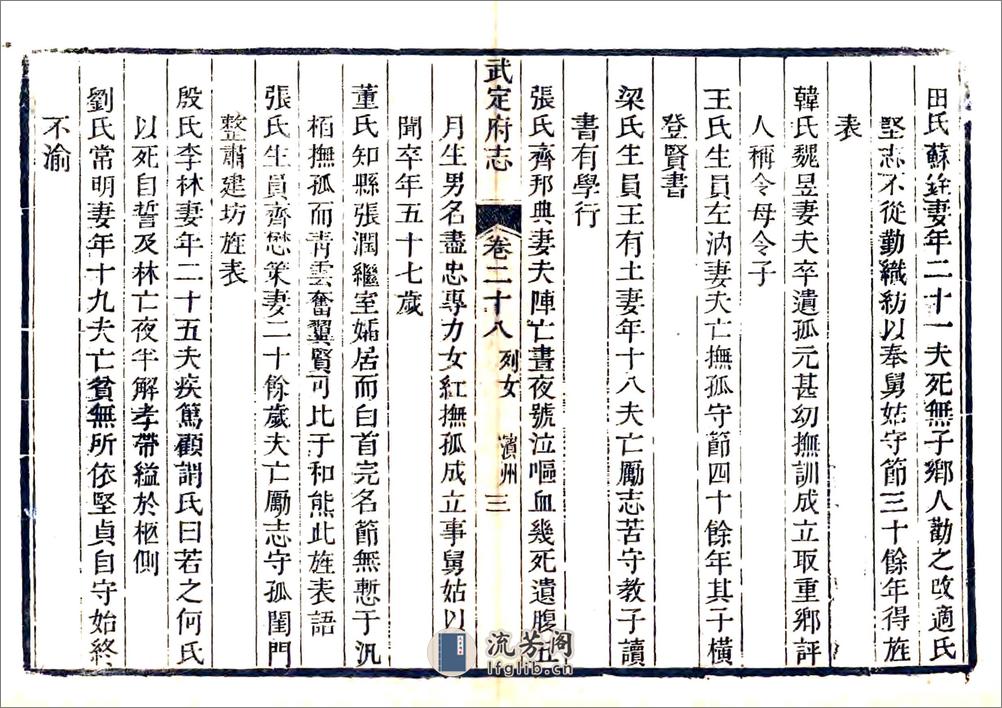 田氏蘇銓妻年二十一夫死無子鄉人勸之改適氏
堅志不從勤織紡以奉舅姑守節三十餘年得旌
表
韓氏魏昱妻夫卒遺孤元甚幼撫訓成立取重鄉評
人稱令母令子
王氏生員左汭妻夫亡撫孤守節四十餘年其子橫
登賢書
梁氏生員王有土妻年十八夫亡勵志苦守教子讀
書有學行
張氏齊邦典妻夫陣亡晝夜號泣嘔血幾死遺腹五
武定府志 卷二十八 列女 濱州 三
月生男名盡忠專力女紅撫孤成立事舅姑以
聞卒年五十七歲
董氏知縣張潤繼室孀居而白首完名節無慙于汎
栢撫孤而青雲奮翼賢可比于和熊此旌表語
張氏生員齊懋策妻二十餘歲夫亡勵志守孤閨門
整肅建坊旌表
殷氏李林妻年二十五夫疾篤顧謂氏曰若之何氏
以死自誓及林亡夜半解孝帶縊於柩側
劉氏常明妻年十九夫亡貧無所依堅貞自守始終
不渝
流芳阁
lfglib.cn